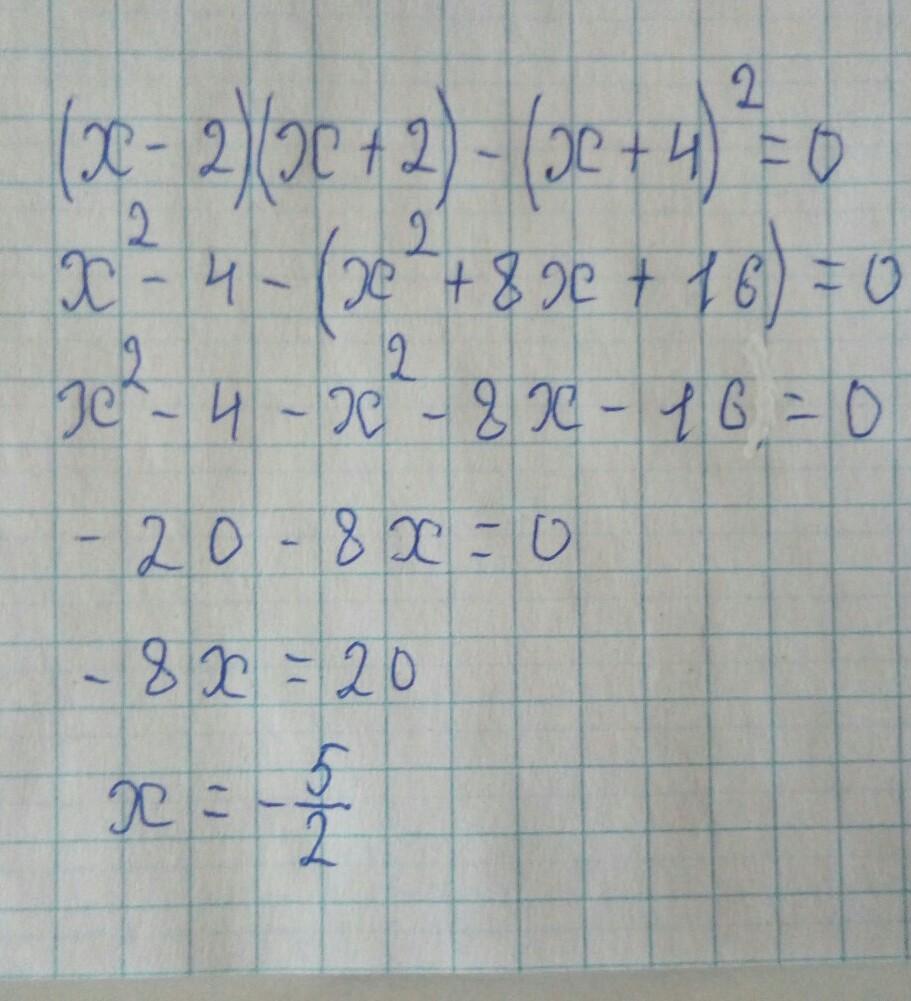 (x - 2)(x + 2) - (x + 4)² = 0
x² - 4 - (x² + 8x + 16) = 0
x² - 4 - x² - 8x - 16 = 0
- 20 - 8x = 0
- 8x = 20
x = - 5/2